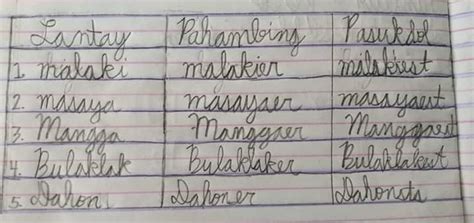 Lantay Pahambing Pasukdol
1. malaki malakier malakiest
2. masaya masayaer masayaest
3. Mangga Manggaer Manggaest
4. Bulaklak Bulaklaker Bulaklakest
5. Dahon Dahoner Dahonsta